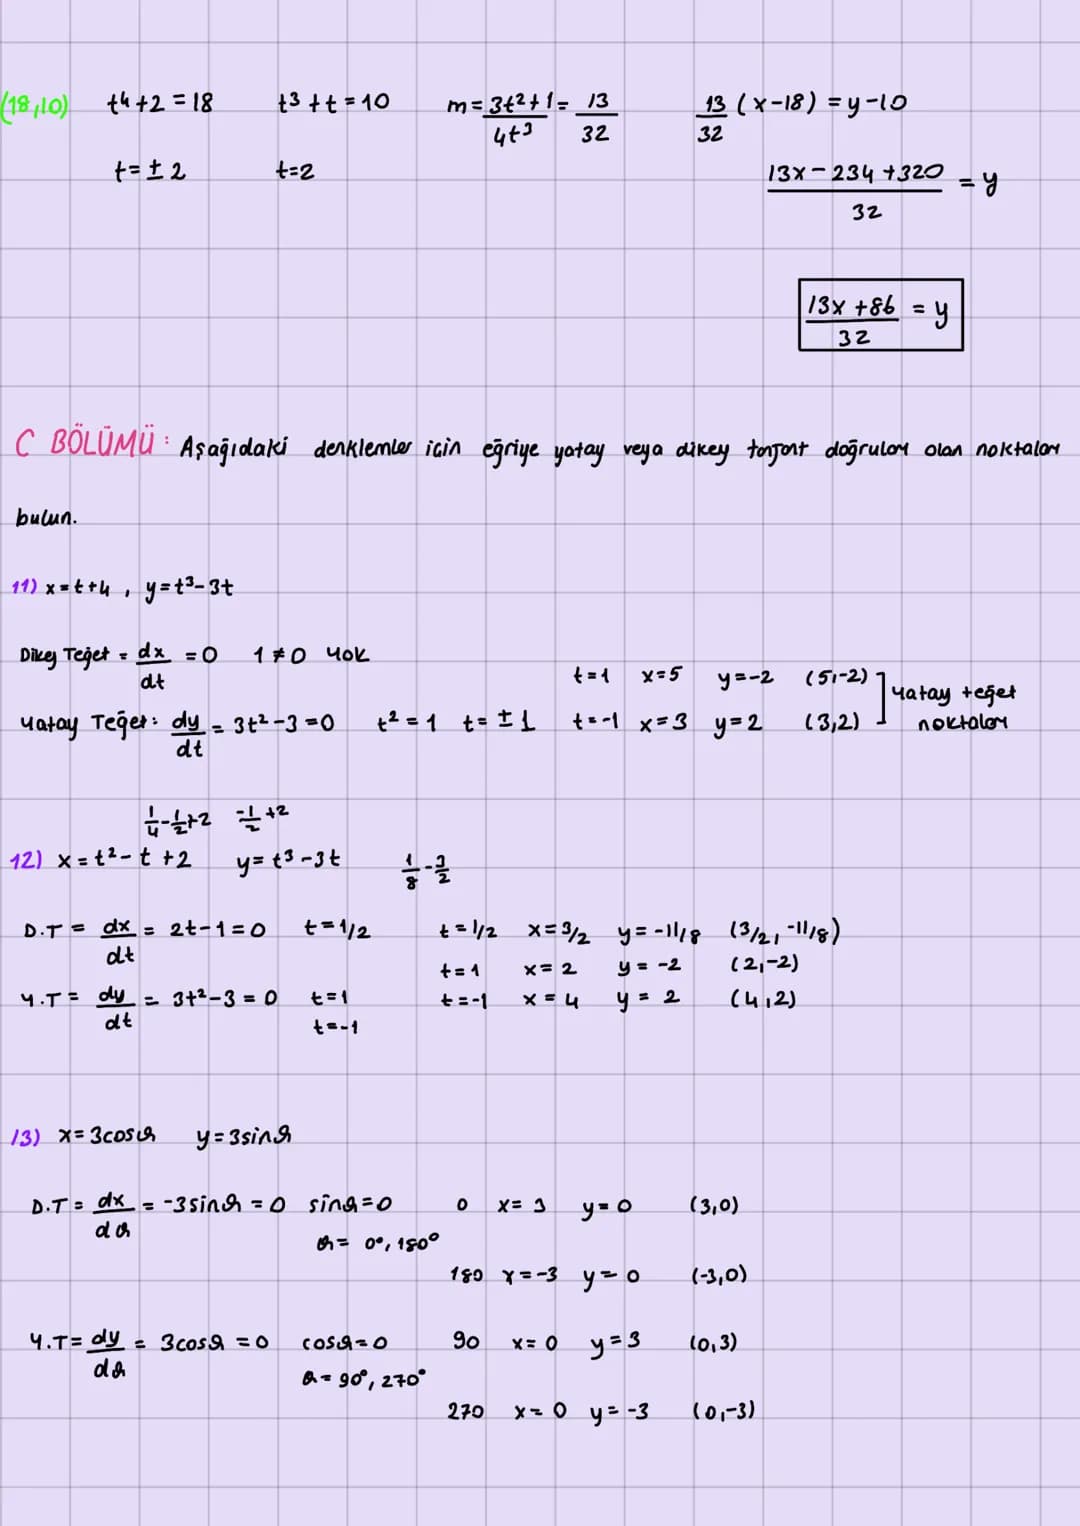 (18,10) t⁴+2=18 t³+t=10 m=3t²+1/4t³=13/32 13/32(x-18)=y-10
t=±2 t=2 13x-234+320/32=y
13x+86/32=y
C BÖLÜMÜ: Aşağıdaki denklemler için eğriye yatay veya dikey tanjant doğruları olan noktaları
bulun.
11) x=t+4, y=t³-3t
Dikey Teğet = dx/dt =0 1≠0 Yok
t=1 x=5 y=-2 (5,-2)
Yatay Teğet: dy/dt = 3t²-3=0 t²=1 t=±1 t=-1 x=3 y=2 (3,2) Yatay teğet noktaları
1/4-1/2+2 -1/2+2
12) x=t²-t+2 y=t³-3t 1/8-3/2
D.T = dx/dt = 2t-1=0 t=1/2 t=1/2 x=3/2 y=-11/8 (3/2,-11/8)
t=1 x=2 y=-2 (2,-2)
Y.T = dy/dt = 3t²-3=0 t=1 t=-1 x=4 y=2 (4,2)
t=-1
13) x=3cosθ y=3sinθ
D.T = dx/dθ = -3sinθ=0 sinθ=0 0 x=3 y=0 (3,0)
θ=0°,180°
180 x=-3 y=0 (-3,0)
Y.T = dy/dθ = 3cosθ=0 cosθ=0 90 x=0 y=3 (0,3)
θ=90°,270°
270 x=0 y=-3 (0,-3)